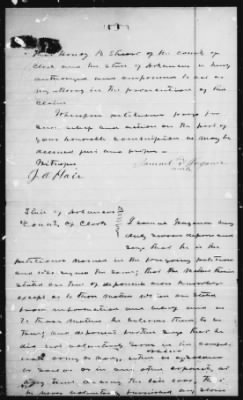 That Henry B Stuart of the County of
Clark and the State of Arkansas is hereby
authorized and empowered to act as
my attorney in the prosecution of this
Claim
Wherefore petitioner prays for
such relief and action on the part of
your honorable commission as may be
deemed just and proper
Witness
J. A. Hair
State of Arkansas
County of Clark
I Samuel being
duly sworn deposes and
says that he is the
petitioner named in the foregoing petition
and who signed the same; that the matters therein
stated are true of deponent's own knowledge
except as to those matters which are stated
from information and belief and as
to those matters he believes them to be
true; and deponent further says that he
did not voluntarily serve in the
army or navy, either as
or
or in any other capacity, at
any time during the late war. That
he never voluntarily furnished any